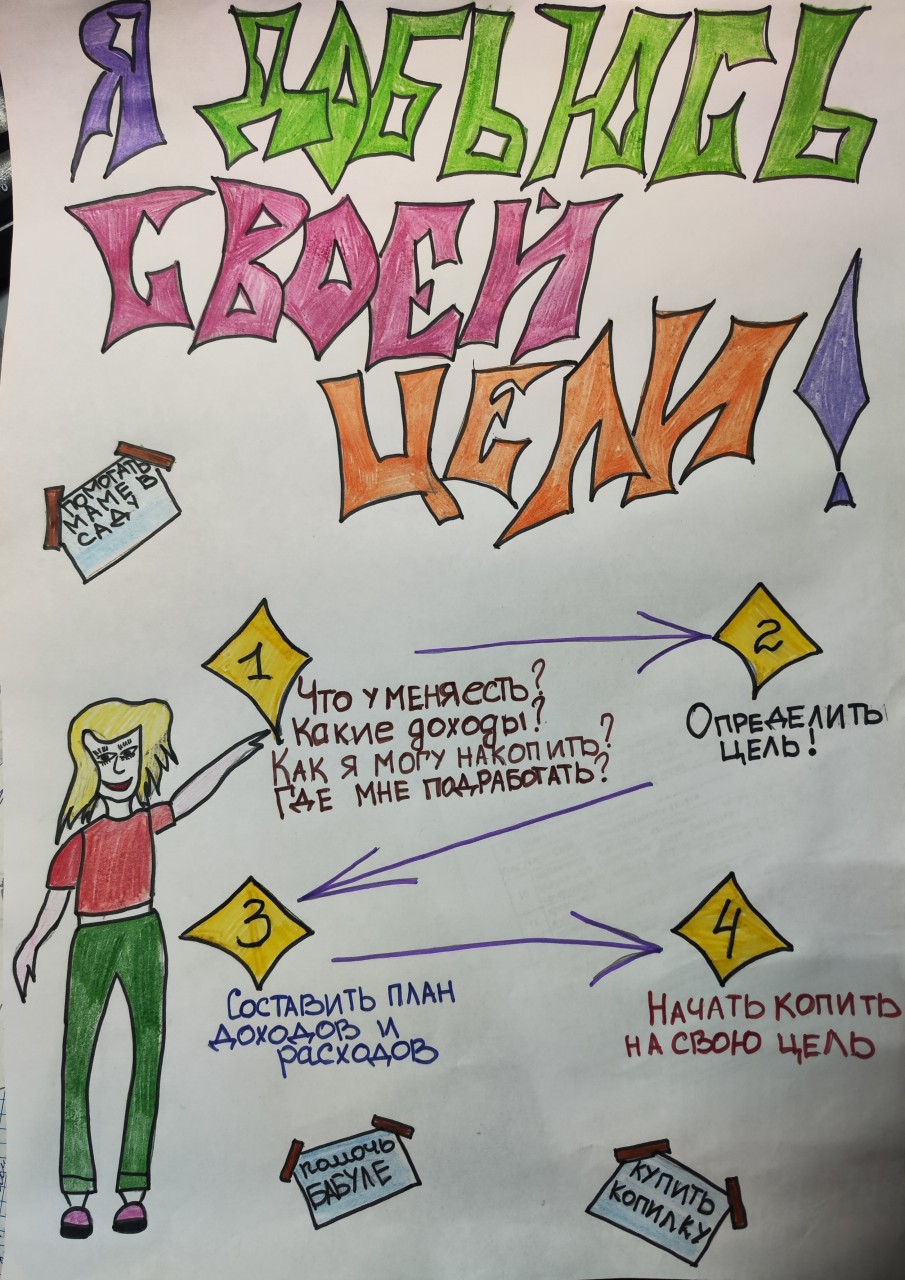 Я ДОБЬЮСЬ
СВОЕЙ
ЦЕЛИ!
ПОМОГАТЬ
МАМЕ В
САДУ
1
2
Что у меня есть?
Какие доходы?
Как я могу накопить?
Где мне подработать?
Определить
цель!
3
4
Составить план
доходов и
расходов
Начать копить
на свою цель
помочь
БАБУЛЕ
КУПИТЬ
КОПИЛКУ